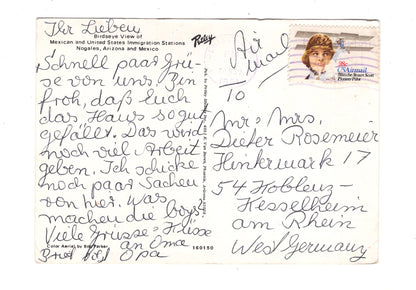 Ihr Lieben
Birdseye View of
Mexican and United States Immigration Stations
Nogales, Arizona and Mexico
Schnell paar Grü-
se von uns. Bin
froh, daß Euch
das Haus so gut
gefällt. Das wird
noch viel Arbeit
geben. Ich schicke
noch paar Sachen
von hier. Was
machen die boys
Viele Grüsse + Küsse
an Oma
Opa
Color Aerial by Bob Petley
160150
Petley
Air
mail
TO
Mr + Mrs.
Dieter Rosemeier
Hinkermark 17
54 Koblenz-
Kesselheim
am Rhein
West Germany
USAirmail
Blanche Stuart Scott
Pioneer Pilot